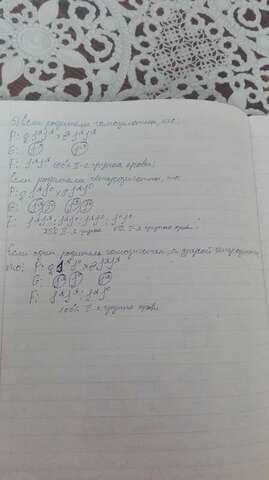 5) Если родители гомозиготны, то:
P: ♀ J^A J^A × ♂ J^A J^A
G: J^A J^A
F: J^A J^A 100% II-я группа крови;
Если родители гетерозиготны, то:
P: ♀ J^A J^O × ♂ J^A J^O
G: J^A J^O J^A J^O
F: J^A J^A; J^A J^O; J^A J^O; J^O J^O
75% II-я группа 25% I-я группа крови
Если один родитель гомозиготен, а другой гетерозиготен,
то: P: ♀ J^A J^O × ♂ J^A J^A
G: J^A J^O J^A
F: J^A J^A; J^A J^O
100% II-я группа крови